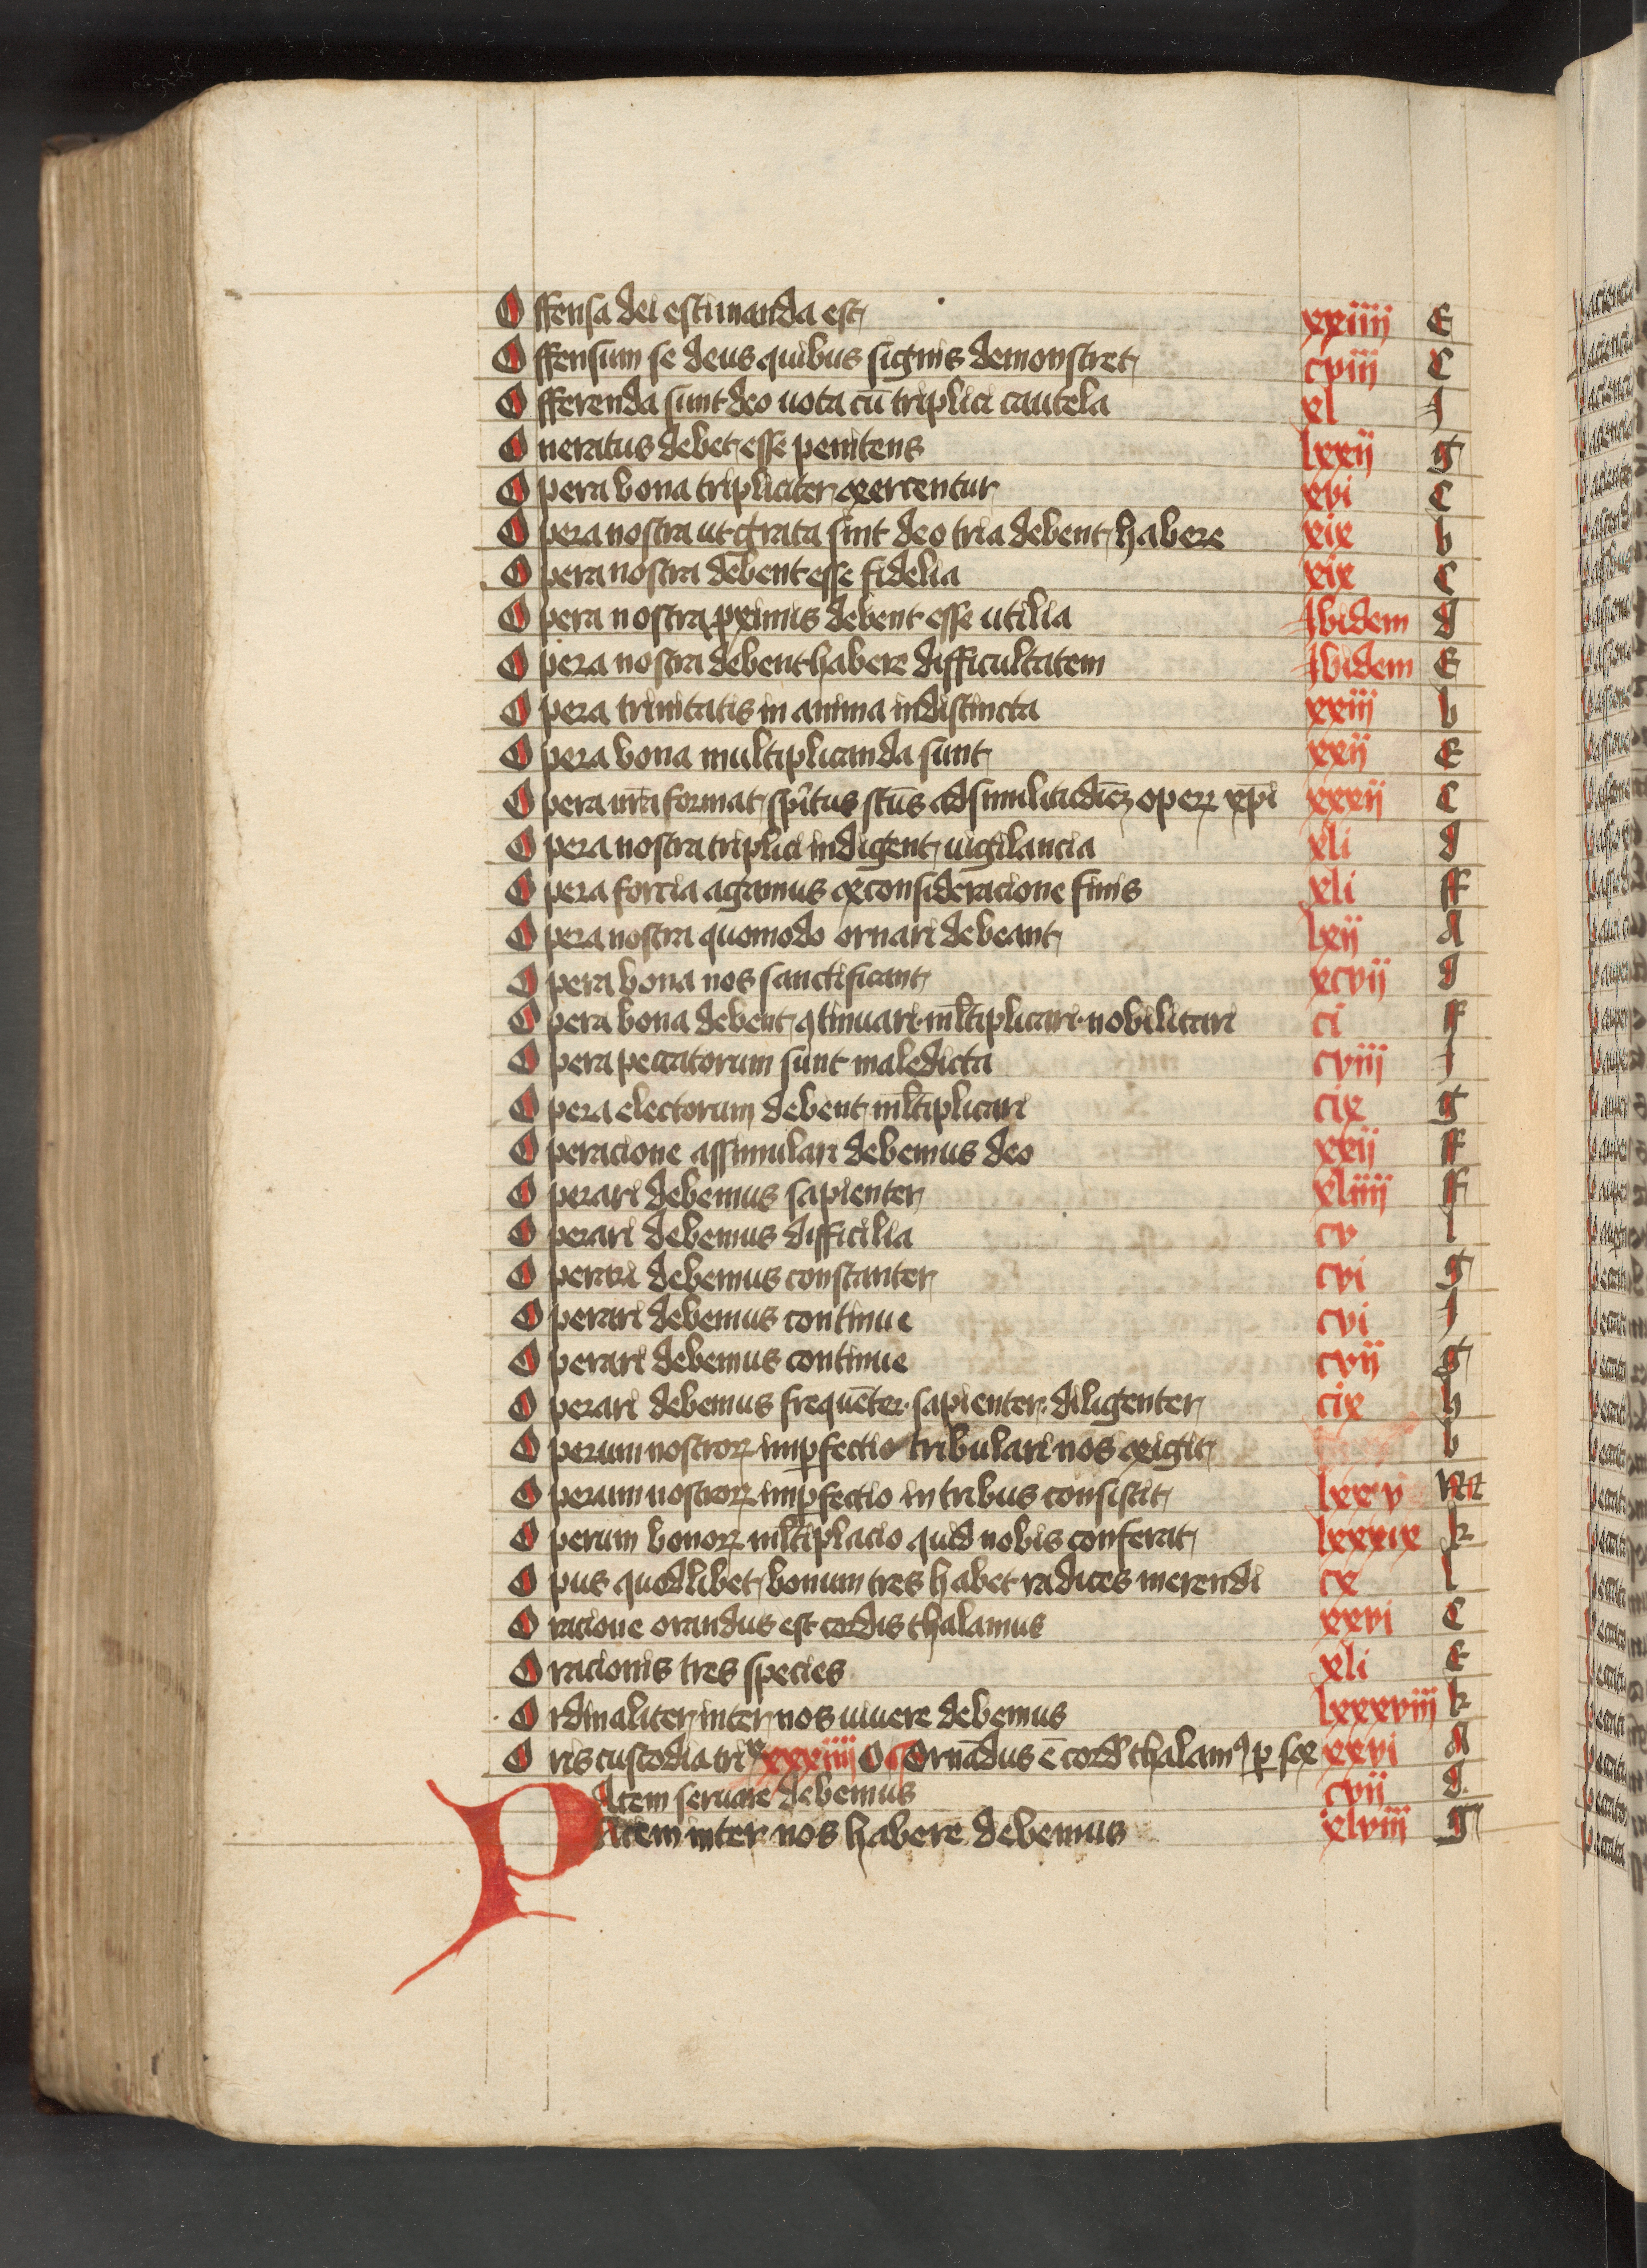 Offensa dei estimanda est xxiiij E
Offensum se deus quibus signis demonstret cviij C
Offerenda sunt deo uota cū triplici cautela xl J
Oneratus debet esse penitens lxxij g
Opera bona tripliciter exercentur xvi C
Opera nostra ut grata sint deo tria debent habere xix b
Opera nostra debent esse fidelia xix C
Opera nostra ꝓximis debent esse utilia Ibidem d
Opera nostra debent habere difficultatem Ibidem E
Opera trinitatis in anima indistincta xxiij b
Opera bona multiplicanda sunt xxij E
Opera nr̄a format spūs stūs ad similitudīez operꝝ xp̄i xxxij C
Opera nostra triplici indigent uigilancia xli d
Opera forcia agamus ex consideracione finis xli ff
Opera nostra quomodo ornari debeant lxij A
Opera bona nos sanctificant xcvij d
Opera bona debent ꝯtinuari · ml̄tiplicari · nobilitari ci ff
Opera peccatorum sunt maledicta cviij J
Opera electorum debent ml̄tiplicari cix g
Operacione assimulari debemus deo xxij ff
Operari debemus sapienter xliiij ff
Operari debemus difficilia cv l
Operari debemus constanter cvi g
Operari debemus continue cvi J
Operari debemus continue cvij g
Operari debemus frequēter · sapienter · diligenter cix h
Operum nostrorꝝ imꝑfectio tribulari nos exigit b
Operum nostrorꝝ imꝑfectio in tribus consistit lxxv m
Operum bonorꝝ ml̄tiplacio quid nobis conferat lxxxix k
Opus quodlibet bonum tres habet radices merendi cx l
Oracione orandus est cordis thalamus xxvi C
Oracionis tres species xli E
Ordinaliter inter nos uiuere debemus lxxxviij k
Oris custodia trix xxxiiij O Ornādus ē cord thalamꝰ ꝑ sex xxvi A
PAcem seruare debemus cvij d
Acem inter nos habere debemus xlviij g